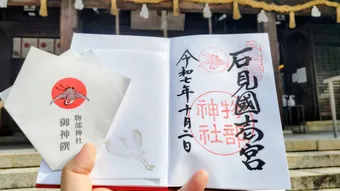 石見國一宮
令和七年十月二日
物部
神社
物部神社
御神饌